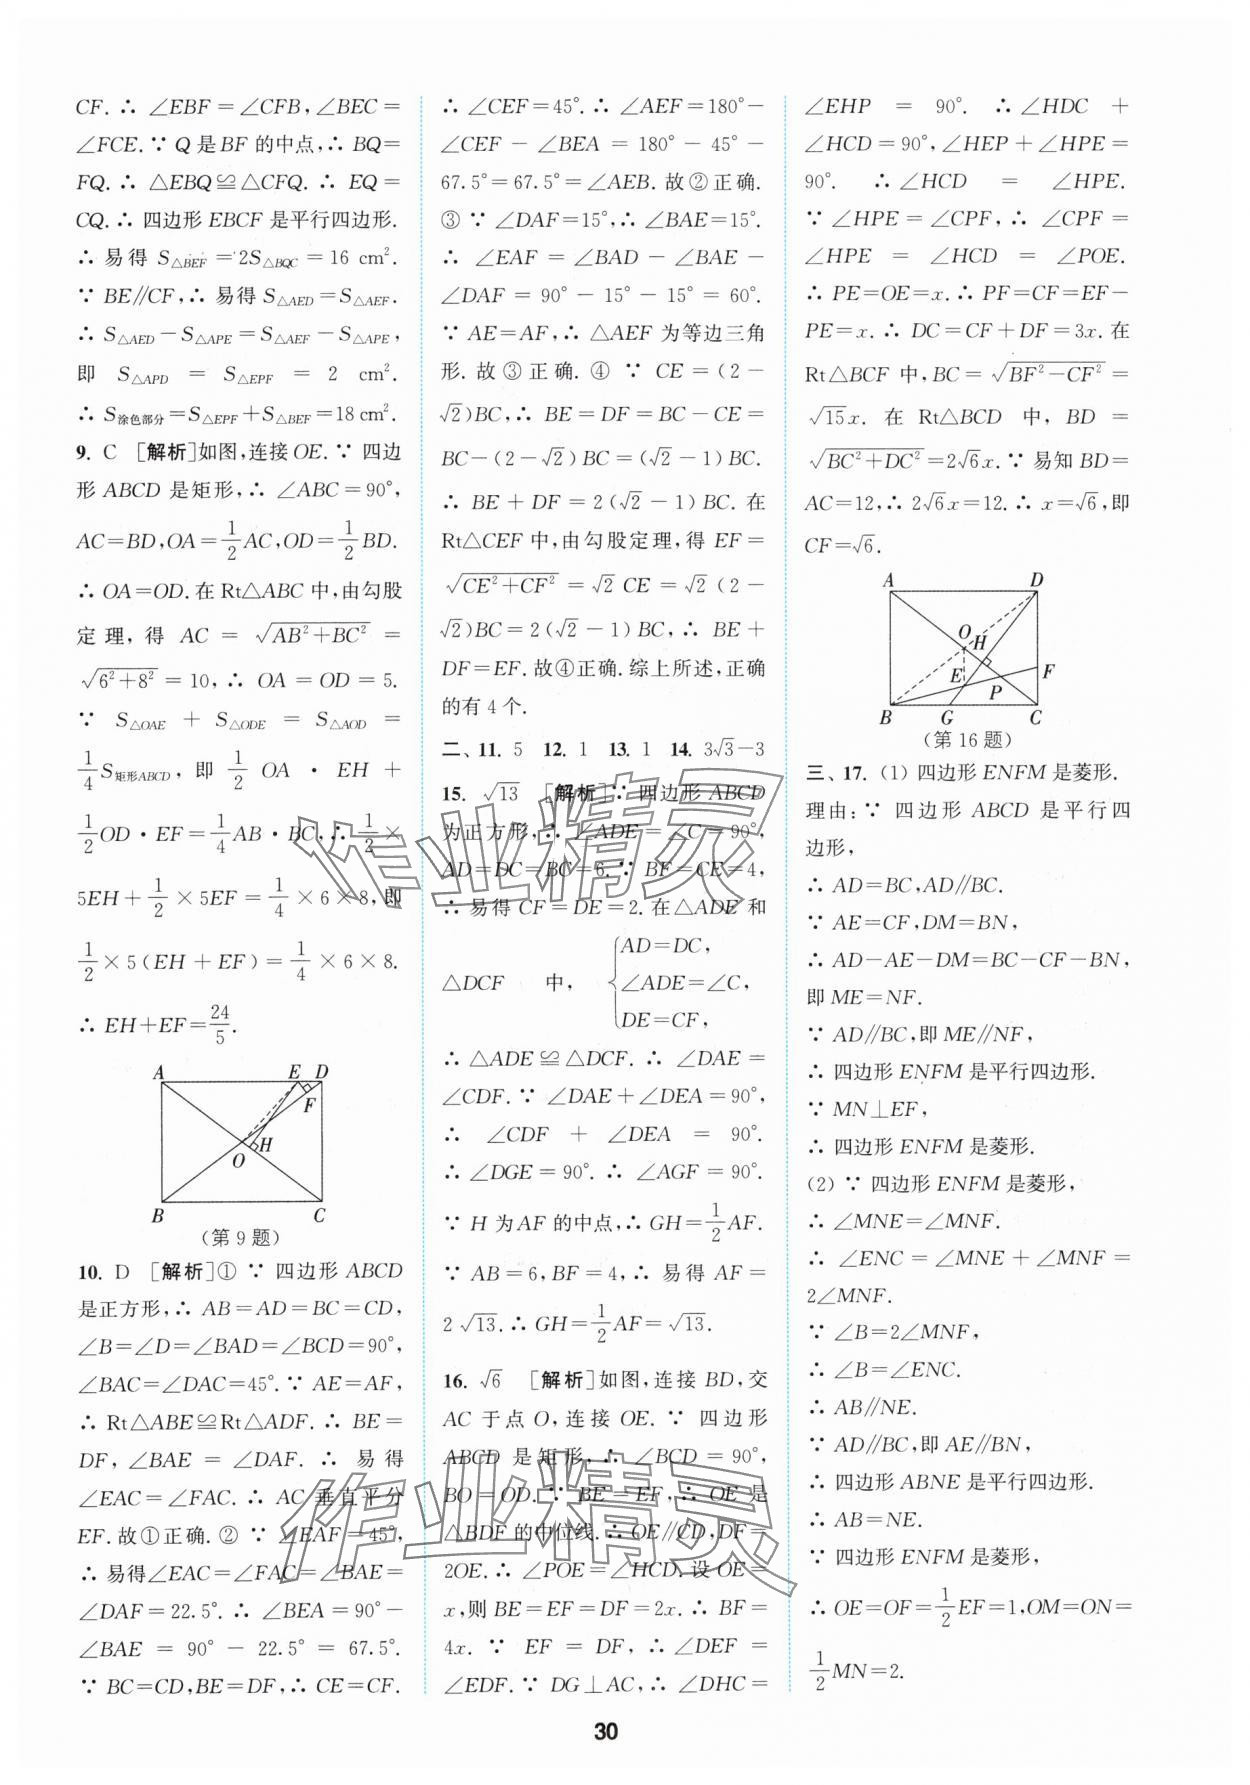 CF.∴ ∠EBF=∠CFB,∠BEC=
∠FCE.∵ Q是BF的中点,∴ BQ=
FQ.∴ △EBQ≌△CFQ.∴ EQ=
CQ.∴ 四边形EBCF是平行四边形.
∴ 易得S△BEF=2S△BQC=16 cm².
∵ BE∥CF,∴ 易得S△AED=S△AEF.
∴ S△AED-S△APE=S△AEF-S△APE,
即 S△APD = S△EPF = 2 cm².
∴ S涂色部分=S△EPF+S△BEF=18 cm².
9. C [解析]如图,连接OE.∵ 四边
形ABCD是矩形,∴ ∠ABC=90°,
AC=BD,OA=1/2AC,OD=1/2BD.
∴ OA=OD.在Rt△ABC中,由勾股
定理,得 AC = √(AB²+BC²) =
√(6²+8²)=10,∴ OA=OD=5.
∵ S△OAE + S△ODE = S△AOD =
1/4S矩形ABCD,即 1/2OA·EH+
1/2OD·EF=1/4AB·BC,∴ 1/2×
5EH+1/2×5EF=1/4×6×8,即
1/2×5(EH+EF)=1/4×6×8.
∴ EH+EF=24/5.
A E D
F
H
O
B C
(第9题)
10. D [解析]① ∵ 四边形ABCD
是正方形,∴ AB=AD=BC=CD,
∠B=∠D=∠BAD=∠BCD=90°,
∠BAC=∠DAC=45°.∵ AE=AF,
∴ Rt△ABE≌Rt△ADF.∴ BE=
DF,∠BAE=∠DAF.∴ 易得
∠EAC=∠FAC.∴ AC垂直平分
EF.故①正确.② ∵ ∠EAF=45°,
∴ 易得∠EAC=∠FAC=∠BAE=
∠DAF=22.5°.∴ ∠BEA=90°-
∠BAE = 90° - 22.5° = 67.5°.
∵ BC=CD,BE=DF,∴ CE=CF.
∴ ∠CEF=45°.∴ ∠AEF=180°-
∠CEF-∠BEA=180°-45°-
67.5°=67.5°=∠AEB.故②正确.
③ ∵ ∠DAF=15°,∴ ∠BAE=15°.
∴ ∠EAF=∠BAD-∠BAE-
∠DAF=90°-15°-15°=60°.
∵ AE=AF,∴ △AEF为等边三角
形.故③正确.④ ∵ CE=(2-
√2)BC,∴ BE=DF=BC-CE=
BC-(2-√2)BC=(√2-1)BC.
∴ BE+DF=2(√2-1)BC.在
Rt△CEF中,由勾股定理,得EF=
√(CE²+CF²)=√2CE=√2(2-
√2)BC=2(√2-1)BC,∴ BE+
DF=EF.故④正确.综上所述,正确
的有4个.
二、11. 5 12. 1 13. 1 14. 3√3-3
15. √13 [解析]∵ 四边形ABCD
为正方形,∴ ∠ADE=∠C=90°,
AD=DC=BC=6.∵ BF=CE=4,
∴ 易得CF=DE=2.在△ADE和
△DCF 中, {AD=DC,
∠ADE=∠C,
DE=CF,
∴ △ADE≌△DCF.∴ ∠DAE=
∠CDF.∵ ∠DAE+∠DEA=90°,
∴ ∠CDF + ∠DEA = 90°.
∴ ∠DGE=90°.∴ ∠AGF=90°.
∵ H为AF的中点,∴ GH=1/2AF.
∵ AB=6,BF=4,∴ 易得AF=
2√13.∴ GH=1/2AF=√13.
16. √6 [解析]如图,连接BD,交
AC于点O,连接OE.∵ 四边形
ABCD是矩形,∴ ∠BCD=90°,
BO=OD.∵ BE=EF,∴ OE是
△BDF的中位线.∴ OE∥CD,DF=
2OE.∴ ∠POE=∠HCD.设OE=
x,则BE=EF=DF=2x.∴ BF=
4x.∵ EF=DF,∴ ∠DEF=
∠EDF.∵ DG⊥AC,∴ ∠DHC=
∠EHP = 90°. ∴ ∠HDC +
∠HCD=90°,∠HEP+∠HPE=
90°. ∴ ∠HCD = ∠HPE.
∵ ∠HPE=∠CPF,∴ ∠CPF=
∠HPE = ∠HCD = ∠POE.
∴ PE=OE=x.∴ PF=CF=EF-
PE=x.∴ DC=CF+DF=3x.在
Rt△BCF中,BC=√(BF²-CF²)=
√15x.在Rt△BCD中,BD=
√(BC²+DC²)=2√6x.∵ 易知BD=
AC=12,∴ 2√6x=12.∴ x=√6,即
CF=√6.
A D
O H
F
E P
B G C
(第16题)
三、17. (1) 四边形ENFM是菱形.
理由:∵ 四边形ABCD是平行四
边形,
∴ AD=BC,AD∥BC.
∵ AE=CF,DM=BN,
∴ AD-AE-DM=BC-CF-BN,
即ME=NF.
∵ AD∥BC,即ME∥NF,
∴ 四边形ENFM是平行四边形.
∵ MN⊥EF,
∴ 四边形ENFM是菱形.
(2) ∵ 四边形ENFM是菱形,
∴ ∠MNE=∠MNF.
∴ ∠ENC=∠MNE+∠MNF=
2∠MNF.
∵ ∠B=2∠MNF,
∴ ∠B=∠ENC.
∴ AB∥NE.
∵ AD∥BC,即AE∥BN,
∴ 四边形ABNE是平行四边形.
∴ AB=NE.
∵ 四边形ENFM是菱形,
∴ OE=OF=1/2EF=1,OM=ON=
1/2MN=2.
30
作业精灵
作业精灵